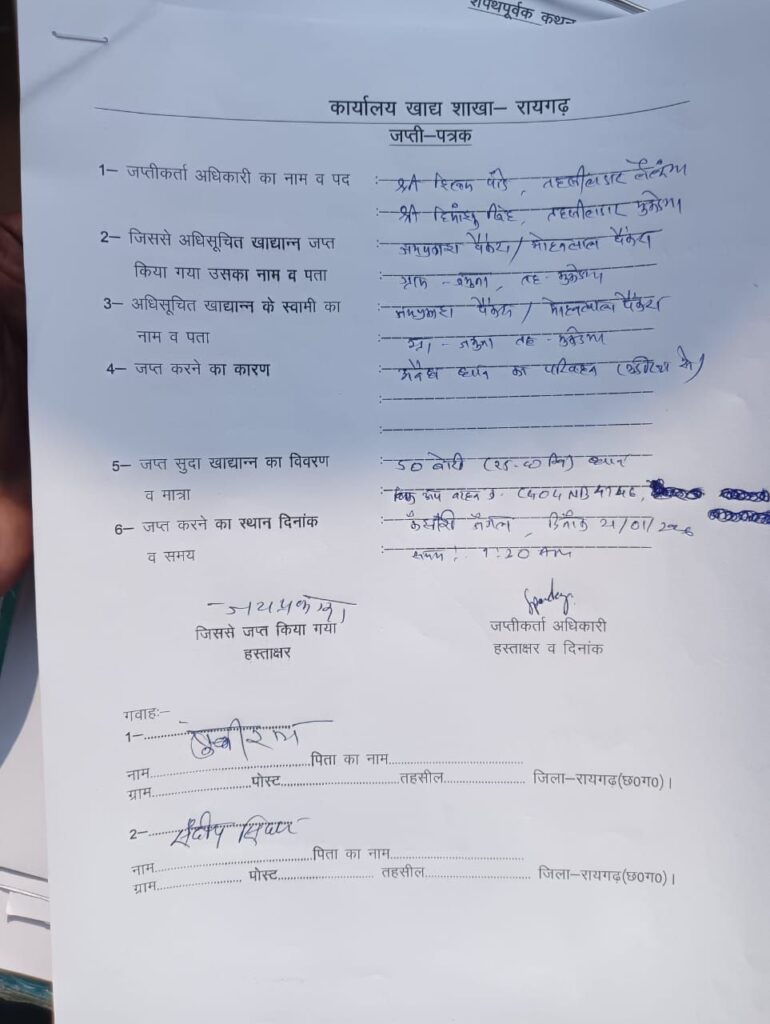 शपथपूर्वक कथन
कार्यालय खाद्य शाखा– रायगढ़
जप्ती–पत्रक
1– जप्तीकर्ता अधिकारी का नाम व पद :- श्री पांडे, तहसीलदार लैलूंगा
श्री सिंह, तहसीलदार मुकडेगा
2– जिससे अधिसूचित खाद्यान्न जप्त :- जयप्रकाश पैंकरा / मोहनलाल पैंकरा
किया गया उसका नाम व पता :- ग्राम - जमुना, तह - मुकडेगा
3– अधिसूचित खाद्यान्न के स्वामी का :- जयप्रकाश पैंकरा / मोहनलाल पैंकरा
नाम व पता :- ग्रा. - जमुना तह - मुकडेगा
4– जप्त करने का कारण :- अवैध धान का परिवहन
5– जप्त सुदा खाद्यान्न का विवरण :- 50 बोरी धान
व मात्रा :- वाहन क्र. CG04NB4746,
6– जप्त करने का स्थान दिनांक :- दिनाँक 21/01/2026
व समय :- समय : 1:20 AM
जयप्रकाश
जिससे जप्त किया गया
हस्ताक्षर
जप्तीकर्ता अधिकारी
हस्ताक्षर व दिनांक
गवाहः–
1–
नाम पिता का नाम
ग्राम पोस्ट तहसील जिला–रायगढ़(छ0ग0)।
2– संदीप सिदार
नाम पिता का नाम
ग्राम पोस्ट तहसील जिला–रायगढ़(छ0ग0)।